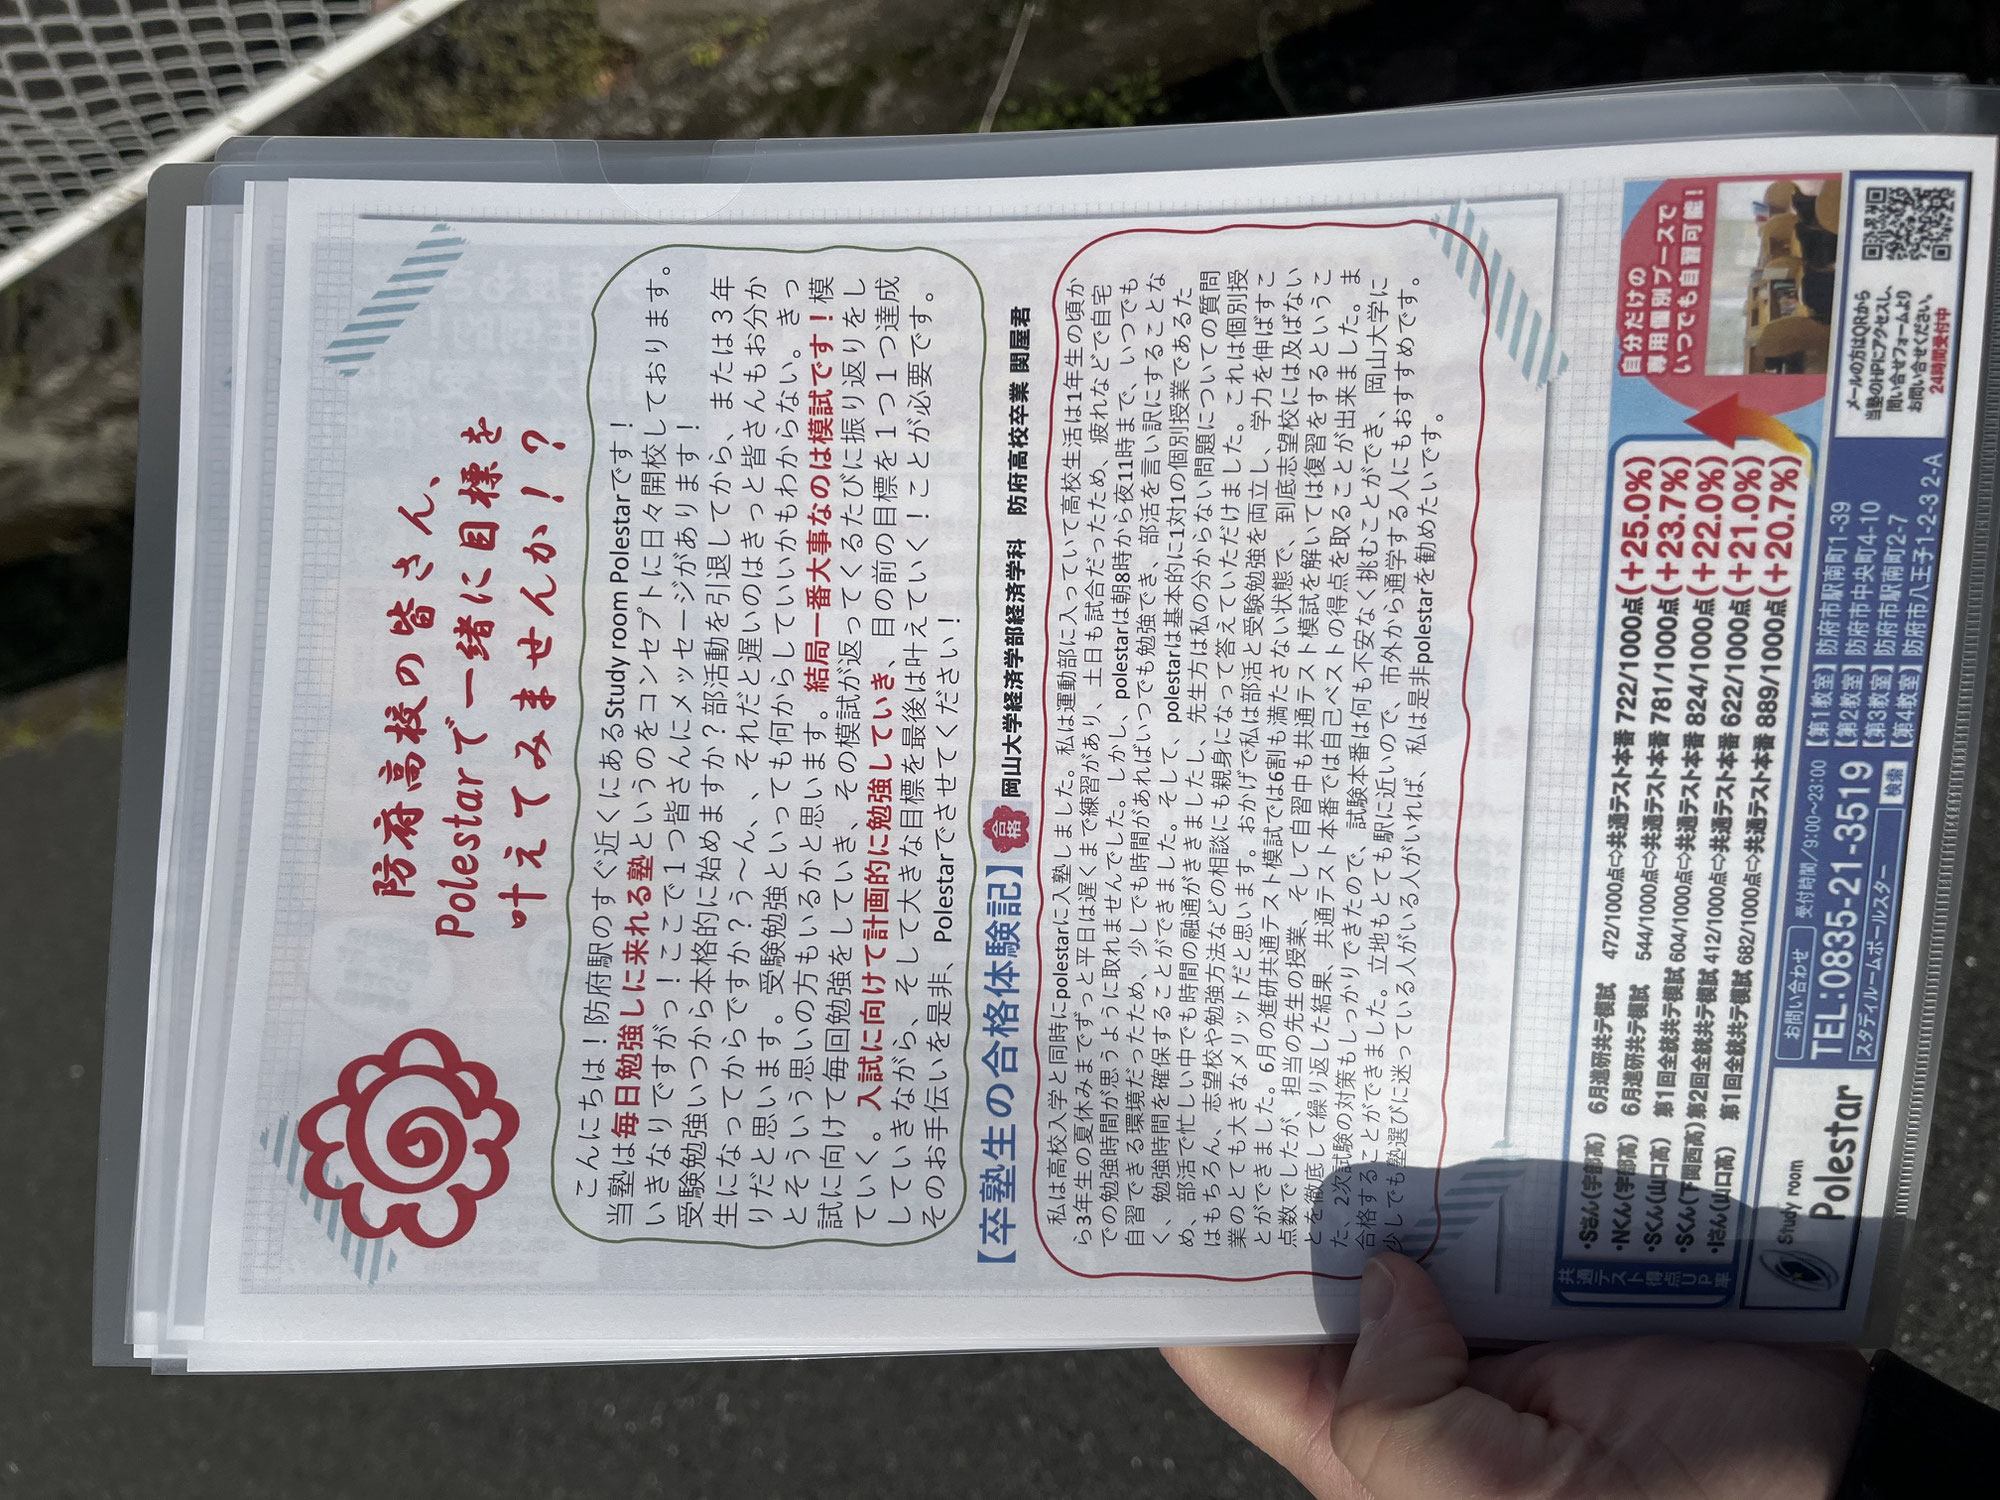 防府高校の皆さん、
Polestarで一緒に目標を
叶えてみませんか！？
こんにちは！防府駅のすぐ近くにあるStudy room Polestarです！
当塾は毎日勉強しに来れる塾というのをコンセプトに日々開校しております。
いきなりですがっ！ここで１つ皆さんにメッセージがあります！
受験勉強いつから本格的に始めますか？部活動を引退してから、または３年
生になってからですか？う～ん、、それだと遅いのはきっと皆さんもお分か
りだと思います。受験勉強といっても何からしていいかもわからない。きっ
とそういう思いの方もいるかと思います。結局一番大事なのは模試です！模
試に向けて毎回勉強をしていき、その模試が返ってくるたびに振り返りをし
ていく。入試に向けて計画的に勉強していき、目の前の目標を１つ１つ達成
していきながら、そして大きな目標を最後は叶えていく！ことが必要です。
そのお手伝いを是非、Polestarでさせてください！
【卒塾生の合格体験記】 合格 岡山大学経済学部経済学科　防府高校卒業 関屋君
私は高校入学と同時にpolestarに入塾しました。私は運動部に入っていて高校生活は1年生の頃か
ら3年生の夏休みまでずっと平日は遅くまで練習があり、土日も試合だったため、疲れなどで自宅
での勉強時間が思うように取れませんでした。しかし、polestarは朝8時から夜11時まで、いつでも
自習できる環境だったため、少しでも時間があればいつでも勉強でき、部活を言い訳にすることな
く、勉強時間を確保することができました。そして、polestarは基本的に1対1の個別授業であるた
め、部活で忙しい中でも時間の融通がききましたし、先生方は私の分からない問題についての質問
はもちろん、志望校や勉強方法などの相談にも親身になって答えていただけました。これは個別授
業のとても大きなメリットだと思います。おかげで私は部活と受験勉強を両立し、学力を伸ばすこ
とができました。6月の進研共通テスト模試では6割も満たさない状態で、到底志望校には及ばない
点数でしたが、担当の先生の授業、そして自習中も共通テスト模試を解いては復習をするというこ
とを徹底して繰り返した結果、共通テスト本番では自己ベストの得点を取ることが出来ました。ま
た、2次試験の対策もしっかりできたので、試験本番は何も不安なく挑むことができ、岡山大学に
合格することができました。立地もとても駅に近いので、市外から通学する人にもおすすめです。
少しでも塾選びに迷っている人がいる人がいれば、私は是非polestarを勧めたいです。
共通テスト得点UP率
・Sさん(宇部高)　6月進研共テ模試　472/1000点⇨共通テスト本番 722/1000点(＋25.0%)
・Nくん(宇部高)　6月進研共テ模試　544/1000点⇨共通テスト本番 781/1000点(＋23.7%)
・Sくん(山口高)　第1回全統共テ模試 604/1000点⇨共通テスト本番 824/1000点(＋22.0%)
・Sくん(下関西高) 第2回全統共テ模試 412/1000点⇨共通テスト本番 622/1000点(＋21.0%)
・Iさん(山口高)　第1回全統共テ模試 682/1000点⇨共通テスト本番 889/1000点(＋20.7%)
自分だけの
専用個別ブースで
いつでも自習可能！
Study room
Polestar
お問い合わせ　受付時間／9:00~23:00
TEL:0835-21-3519
スタディルームポールスター 検索
【第1教室】防府市駅南町1-39
【第2教室】防府市中央町4-10
【第3教室】防府市駅南町2-7
【第4教室】防府市八王子1-2-3 2-A
メールの方はQRから
当塾のHPにアクセスし、
問い合せフォームより
お問い合せください。
24時間受付中